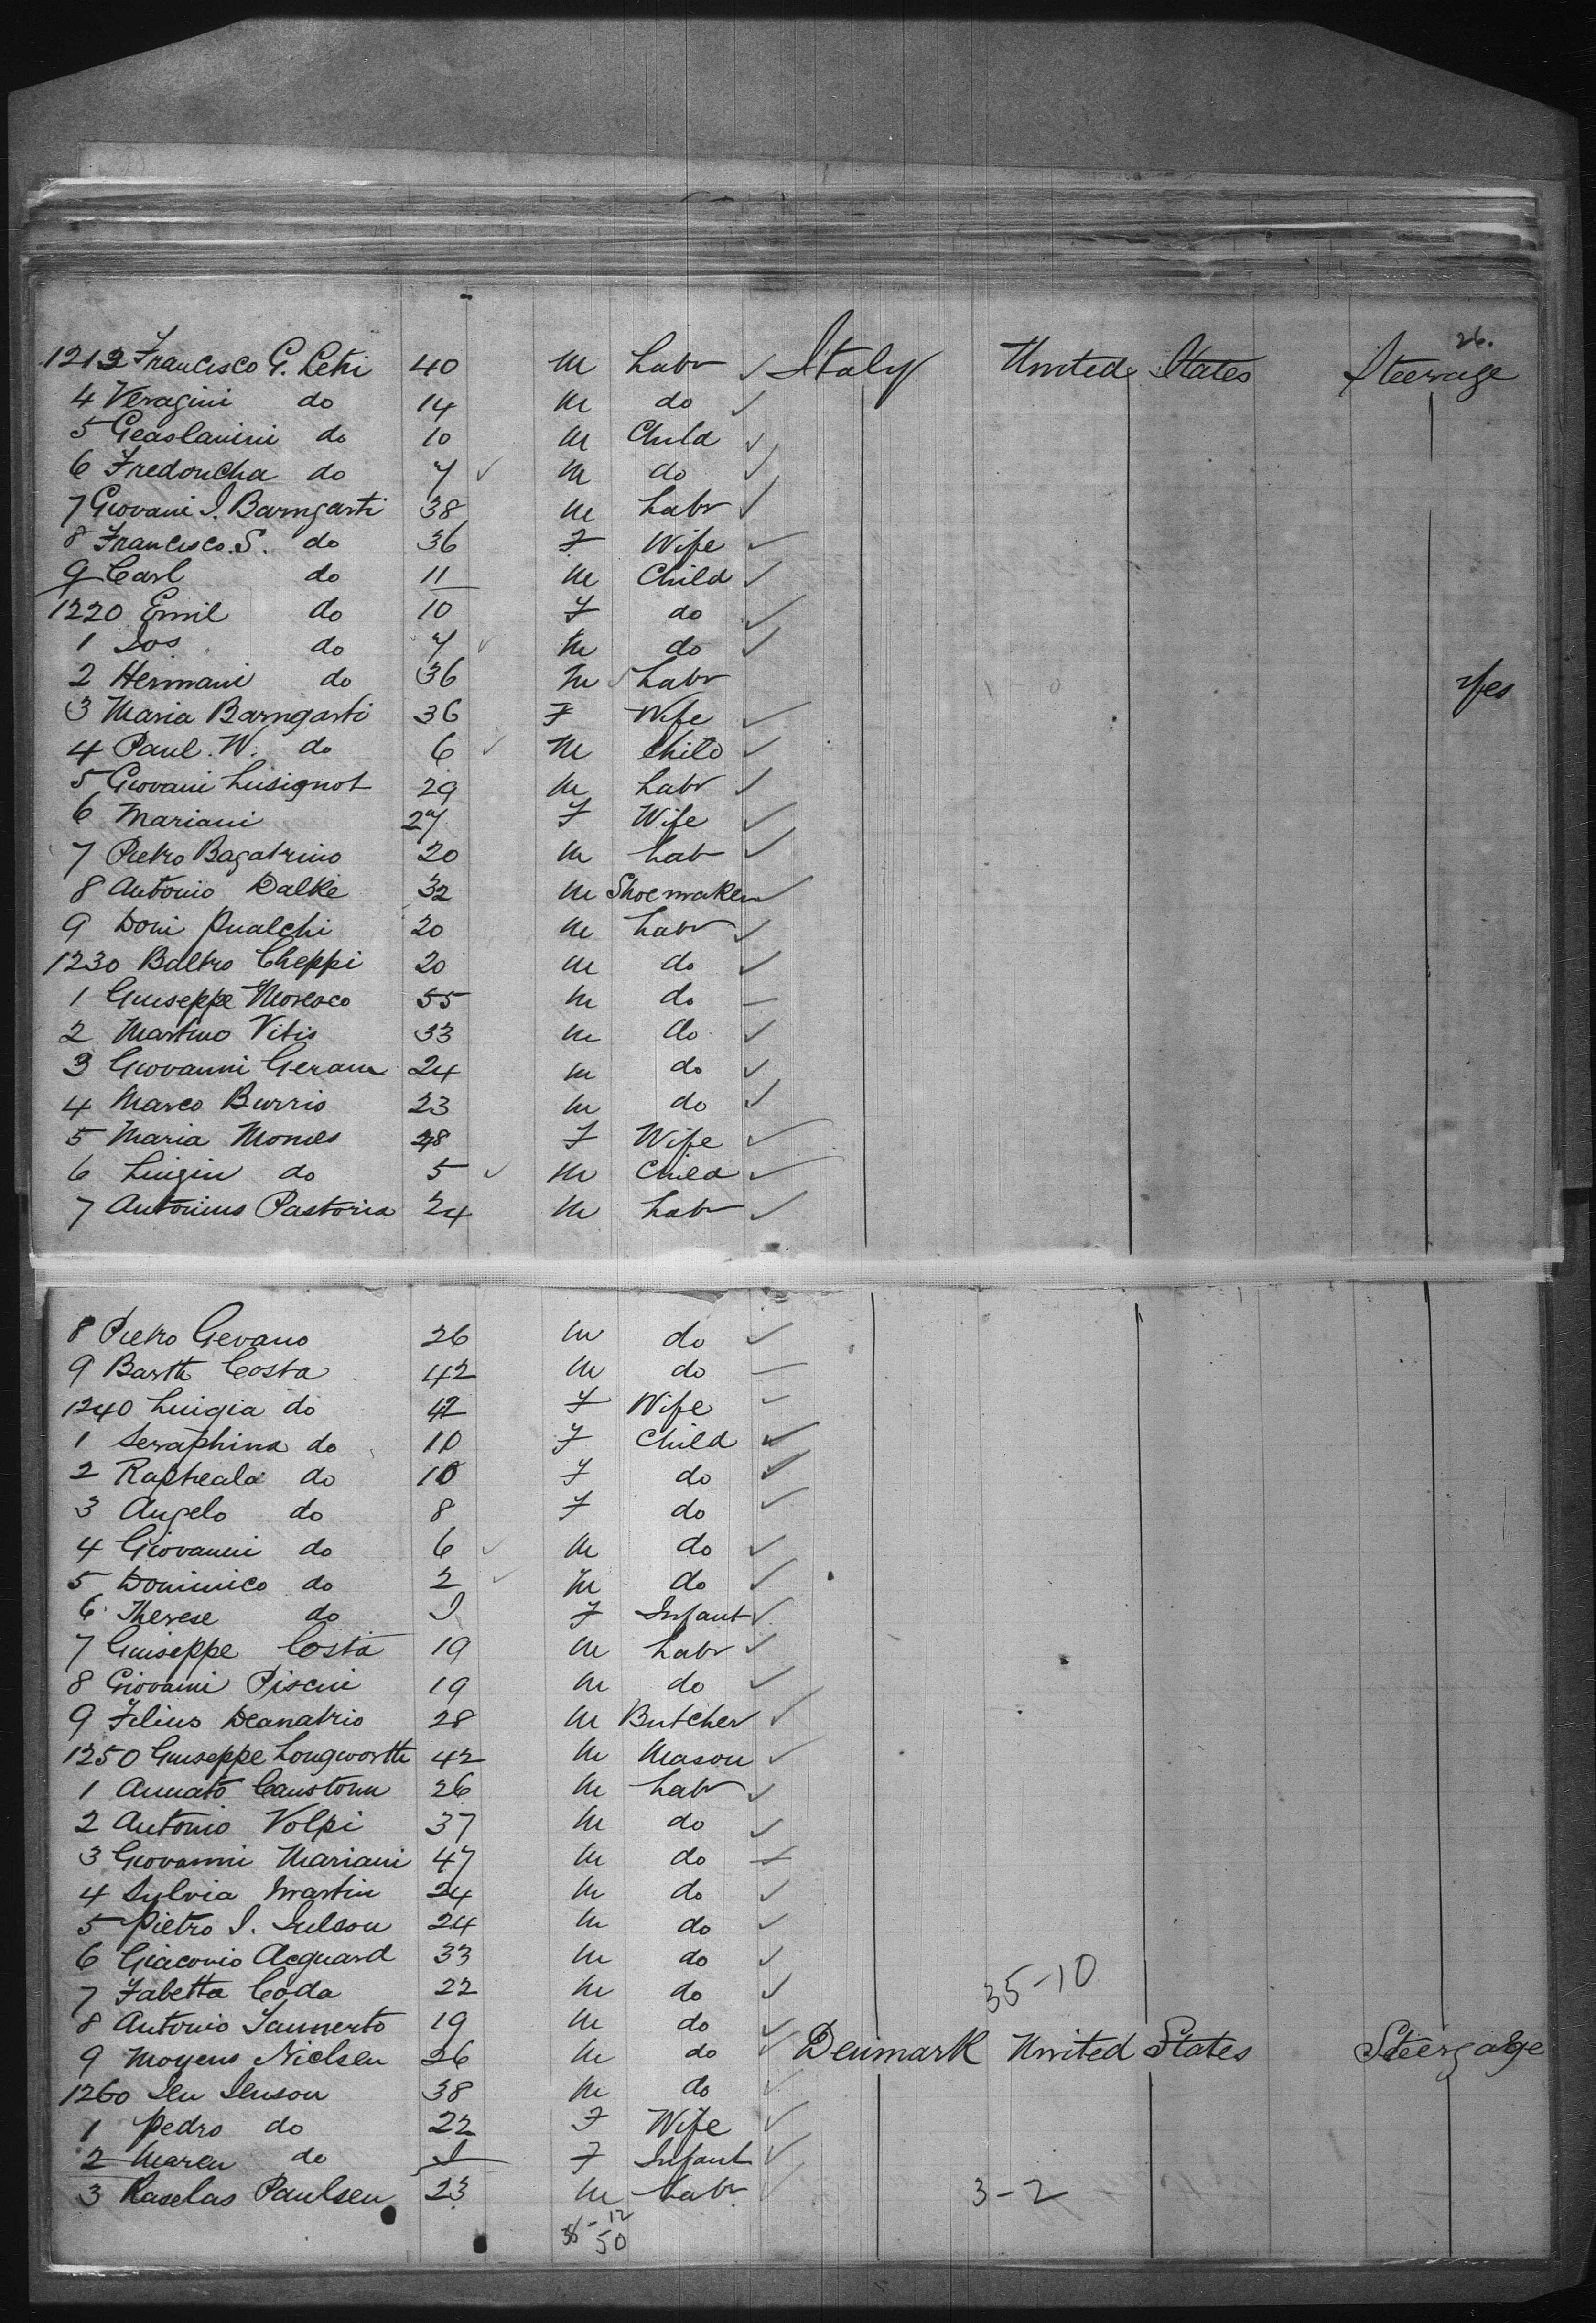 26.
1213 Francisco G. Leti 40 M Labr ✓ Italy United States Steerage
4 Veragini do 14 M do ✓
5 Geaslanini do 10 M Child ✓
6 Fredoncha do 7 ✓ M do ✓
7 Giovani I. Barngarti 38 M Labr ✓
8 Francisco. S. do 36 F Wife ✓
9 Carl do 11 M Child ✓
1220 Emil do 10 F do ✓
1 Jos do 7 ✓ M do ✓
2 Hermani do 36 M ✓ Labr Yes
3 Maria Barngarti 36 F Wife ✓
4 Paul. W. do 6 ✓ M Child ✓
5 Giovani Lusignot 29 M Labr ✓
6 Mariani 27 F Wife ✓
7 Pietro Bagatrino 20 M Labr ✓
8 Antonio Dalke 32 M Shoemaker ✓
9 Doni Pualchi 20 M Labr ✓
1230 Baltro Cheppi 20 M do ✓
1 Guiseppe Moresco 55 M do —
2 Martino Vitis 33 M do ✓
3 Giovanni Geram 24 M do ✓
4 Marco Burrio 23 M do ✓
5 Maria Momes 28 F Wife ✓
6 Luigin do 5 ✓ M Child ✓
7 Antonius Pastoria 24 M Labr ✓
8 Pietro Gevano 26 M do ✓
9 Barth Costa 42 M do —
1240 Luigia do 42 F Wife ✓
1 Seraphina do 10 F Child ✓
2 Rapheala do 10 F do ✓
3 Angelo do 8 F do ✓
4 Giovanni do 6 ✓ M do ✓
5 Dominico do 2 ✓ M do ✓
6 Therese do I F Infant ✓
7 Guiseppe Costa 19 M Labr ✓
8 Giovanni Piscini 19 M do ✓
9 Filius Deanatrio 28 M Butcher ✓
1250 Guiseppe Longworth 42 M Mason ✓
1 Annato Caustonn 26 M Labr ✓
2 Antonio Volpi 37 M do ✓
3 Giovanni Mariani 47 M do
4 Sylvia Martin 24 M do ✓
5 Pietro I. Iulson 24 M do ✓
6 Giacovio Acquard 33 M do ✓
7 Fabetta Coda 22 M do ✓ 35-10
8 Antonio Iannerto 19 M do ✓
9 Moyens Nielsen 26 M do ✓ Denmark United States Steerage
1260 Jen Jenson 38 M do ✓
1 Pedro do 22 F Wife ✓
2 Maren do I F Infant ✓
3 Raselas Paulsen 23 M Labr ✓ 3-2
38-12
50